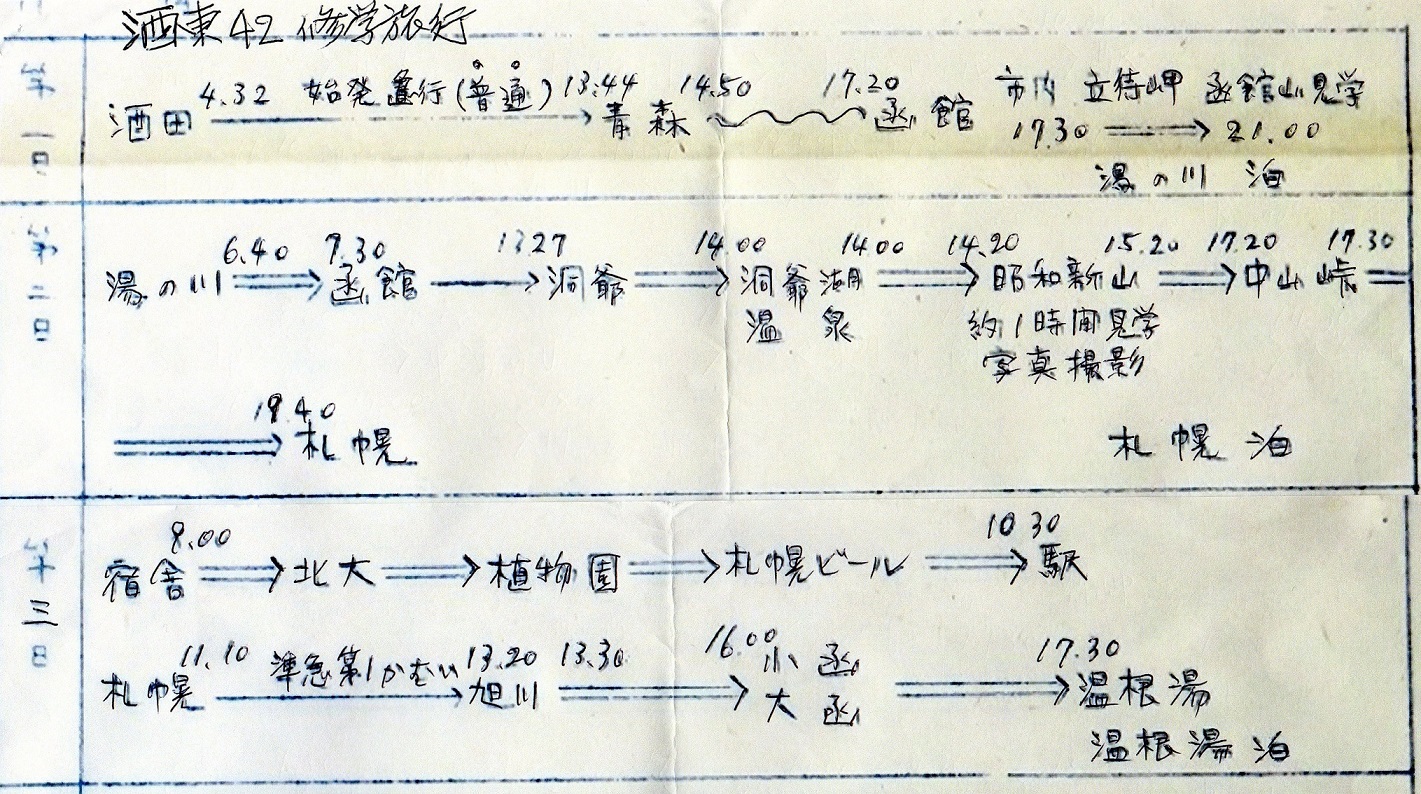 酒東42 修学旅行
第一日
4.32 始発鈍行(普通) 13:44 14.50 17.20 市内 立待岬 函館山見学
酒田 青森 函館 17.30 21.00
湯の川 泊
第二日
6.40 7.30 13.27 14.00 14.00 14.20 15.20 17.20 17.30
湯の川 函館 洞爺 洞爺湖 昭和新山 中山峠
温泉 約1時間見学
写真撮影
19.40
札幌 札幌 泊
第三日
8.00 10 30
宿舎 北大 植物園 札幌ビール 駅
11.10 準急第1かむい 13.20 13.30 16.00 小函 17.30
札幌 旭川 大函 温根湯
温根湯 泊